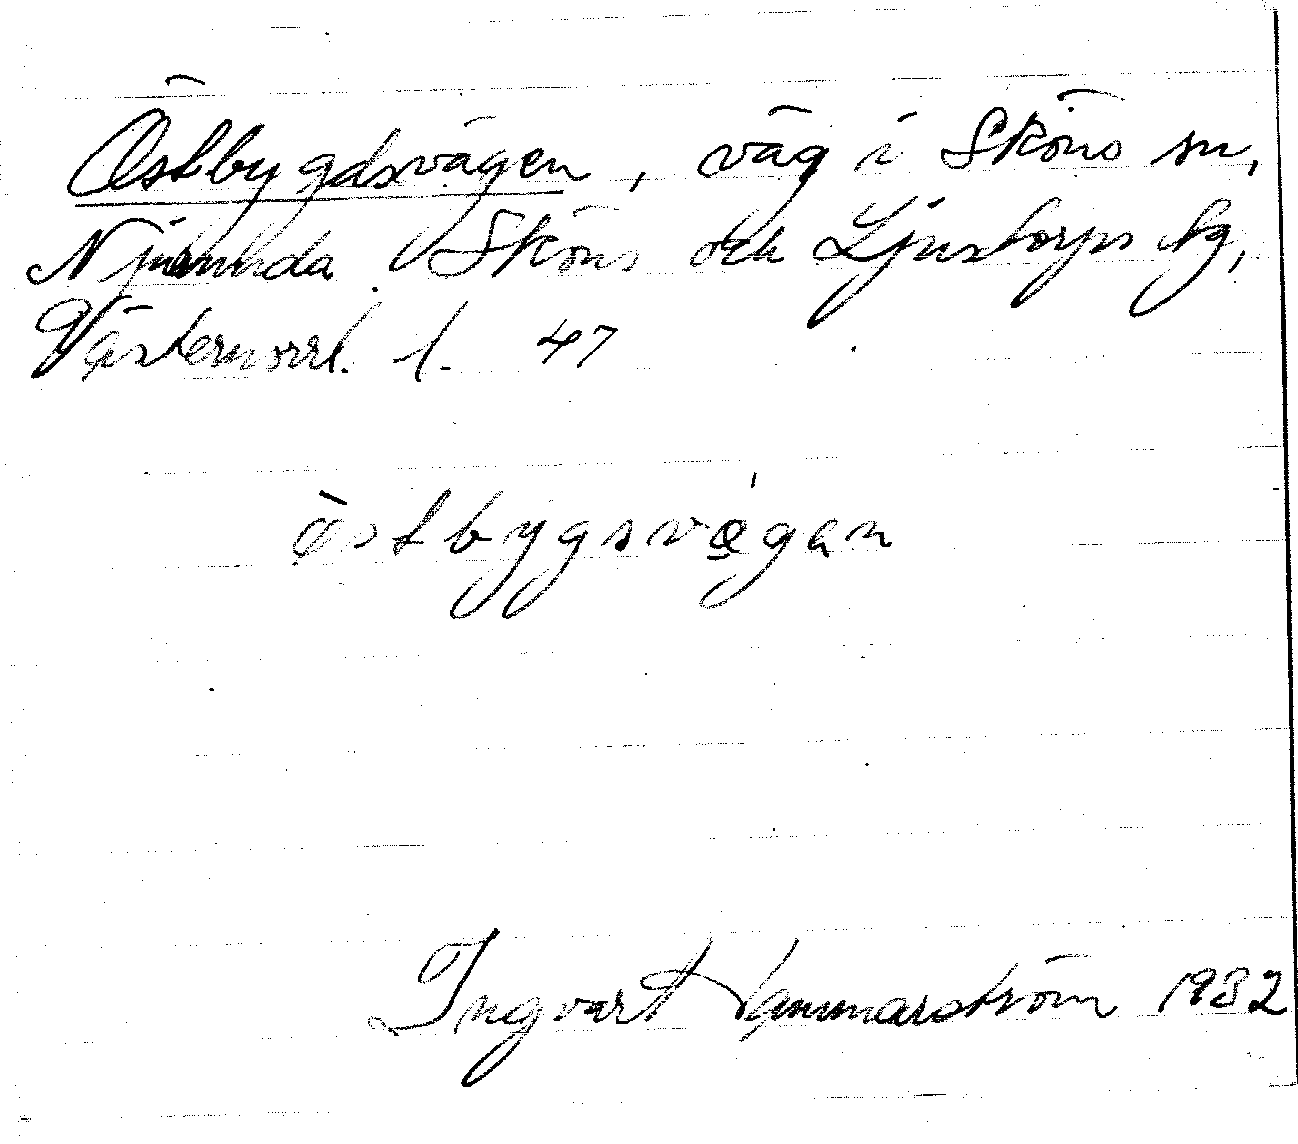 Östbygdsvägen, väg i Sköns sn,
Njurunda, Sköns och Ljustorps tg,
Västernorrl. l. 47
òstbygsvægan
Ingvart Hammarström 1932